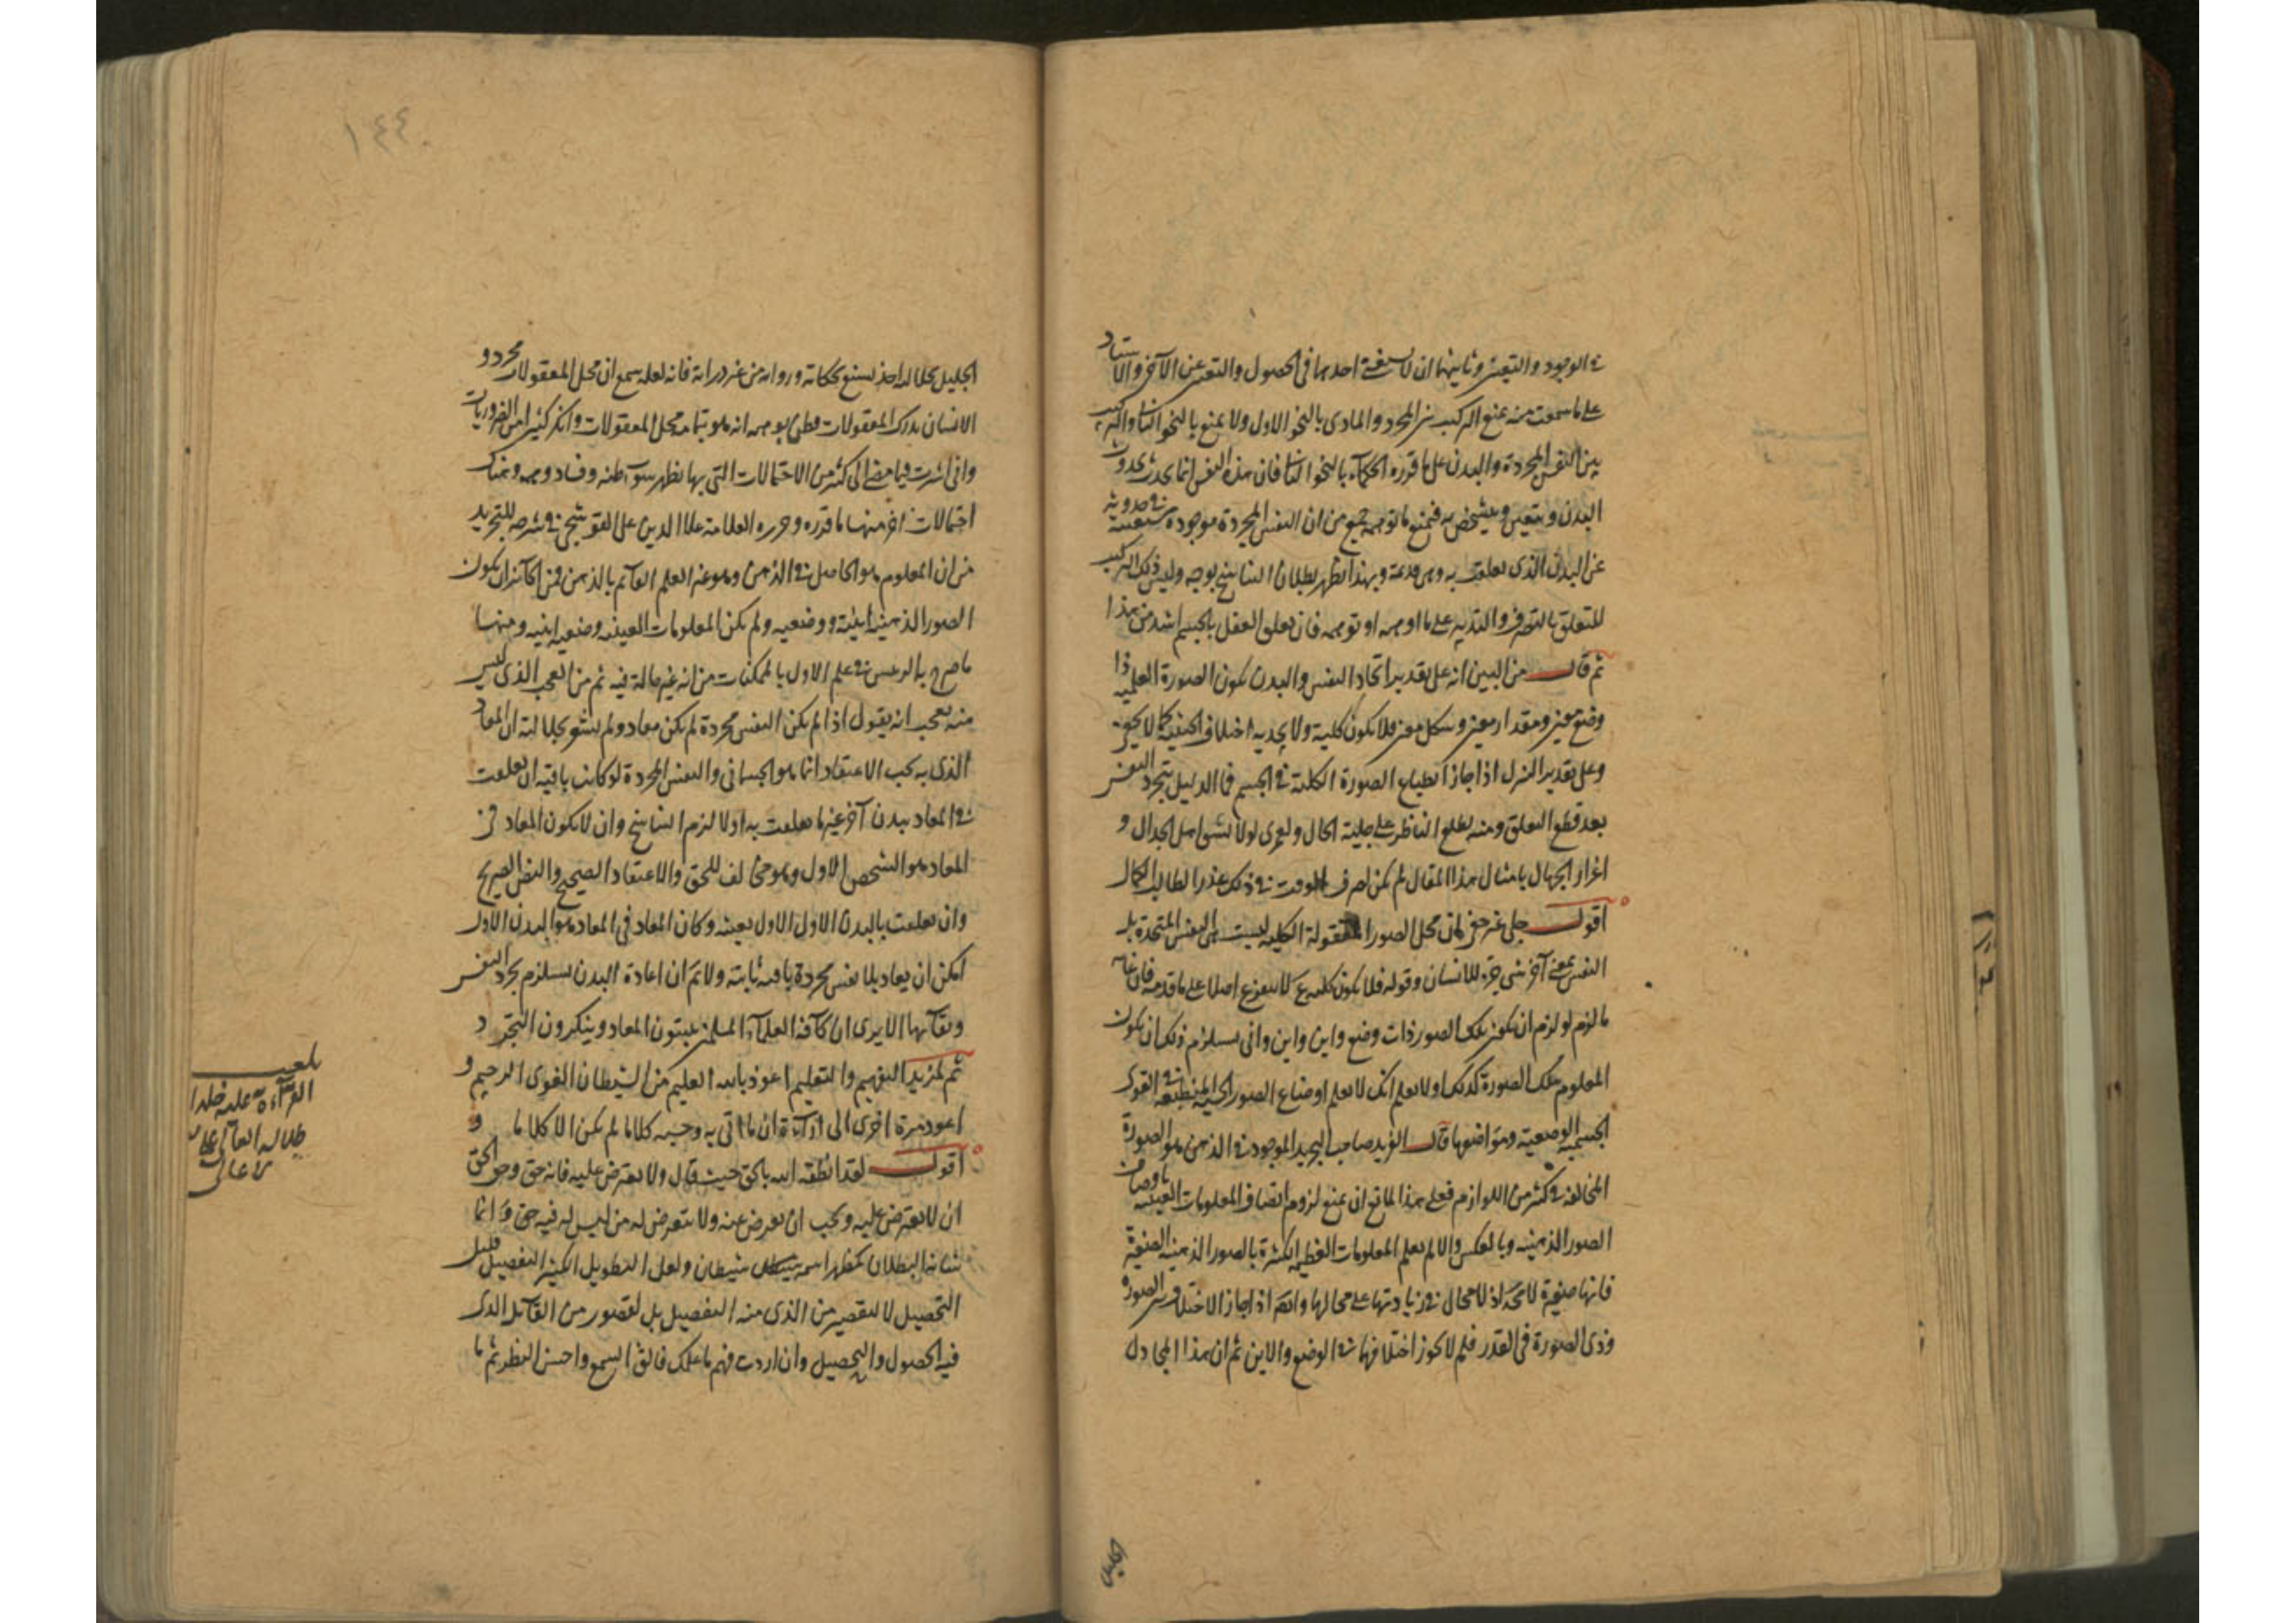 في الوجود والتعين وثانيهما ان لا يستغني احدهما في الحصول والتعين عن الآخر والاستاد
على ما سمعت منه يمنع التركيب بين المجرد والمادي بالنحو الاول ولا يمنع بالنحو الثاني والتركيب
بين النفس المجردة والبدن على ما قرره الحكماء بالنحو الثاني فان هذه النفس انما يحدث بحدوث
البدن ويتعين ويتشخص به فيمنع ما توهمه جمع من ان النفس المجردة موجودة متعينة في حدوثه
عن البدن الذي تعلقت به وهي قديمة وبهذا يظهر بطلان التناسخ بوجه وليس ذلك التركيب
للتعلق بالتصرف والتدبير على ما اوهمه او توهمه فان تعلق العقل بالجسم اشد من هذا
ثم قال من البين انه على تقدير اتحاد النفس والبدن يكون الصورة العلمية ذا
وضع معين ومقدار معين وشكل معين فلا يكون كلية ولا يجديه اختلاف الحيثية كما لا يخفى
وعلى تقدير التنزل اذا جاز انطباع الصورة الكلية في الجسم فما الدليل بتجرد النفس
بعد قطع التعلق ومنه يطلع الناظر على جلية الحال ولعمري لولا تشو اهل الجدال و
اغرار الجهال بامثال هذا المقال لم يكن لصرف الوقت في ذلك عذرا لطالب الكمال
اقول جلي غير خفي ان محل الصور المعقولة الكلية ليست هي النفس المتحدة بل
النفس بمعنى آخر هي جزء للانسان وقوله فلا يكون كلية ع لا يتفرع اصلا على ما قدمه فان غاية
ما لزم لو لزم ان يكون تلك الصور ذات وضع واين واين وانى يستلزم ذلك ان يكون
المعلوم بتلك الصورة كذلك اولا يعلم انك لا تعلم اوضاع الصور الجزئية المنطبعة في القوى
الجسمية الوضعية ومواضعها قال السيد صاحب التجريد الموجود في الذهن هو الصورة
المخالفة في كثير من اللوازم فعلى هذا للمانع ان يمنع لزوم اتصاف المعلومات العينية باوصاف
الصور الذهنية وبالعكس والا لم يعلم المعلومات العظيمة الكثيرة بالصور الذهنية الصغيرة
فانها صغيرة لا محة اذ لا مجال في زيادتها على محالها وايضا اذا جاز الاختلاف بين الصورة
وذي الصورة في القدر فلم لا يجوز اختلافهما في الوضع والاين ثم ان هذا المجادل
الجليل
١٤٤
الجليل بحلاله اخذ يستنبع بحكاية ورواية من غير دراية فانه لعله سمع ان محل المعقولات مجرد و
الانسان يدرك المعقولات فظن بوهمه انه هو بتمامه محل المعقولات وانكر كثيرا من الضروريات
واني اشرت فيما مضى الى كثير من الاحتمالات التي بها يظهر سوء ظنه وفساد وهمه وهناك
احتمالات اخر منها ما قرره وحرره العلامة علا الدين على القوشجي في شرحه للتجريد
من ان المعلوم هو الحاصل في الذهن وهو غير العلم القائم بالذهن فمن الجائز ان يكون
الصور الذهنية اينية ووضعيه ولم يكن المعلومات العينيه وضعيه اينيه ومنها
ما صرح به الرئيس في علم الاول بالممكنات من انه غير حالة فيه ثم من العجب الذي ليس
منه بعجب انه يقول اذا لم يكن النفس مجردة لم يكن معاد ولم يشعر بجلالته ان المعاد
الذي به يجب الاعتقاد انما هو الجسماني والنفس المجردة لو كانت باقية ان تعلقت
في المعاد ببدن آخر غير ما تعلقت به اولا لزم التناسخ وان لا يكون المعاد في
المعاد هو الشخص الاول وهو مخالف للحق والاعتقاد الصحيح والنص الصريح
وان تعلقت بالبدن الاول الاول بعينه وكان المعاد في المعاد هو البدن الاول
امكن ان يعاد بلا نفس مجردة باقيه ثابته ولا تم ان اعادة البدن يستلزم تجرد النفس
وبقائها الا يرى ان كافة العلماء المسلمين يثبتون المعاد وينكرون التجرد
ثم لمزيد التفهيم والتعليم اعوذ بالله العليم من الشيطان الغوي الرجيم و
اعود مرة اخرى الى اراءة ان ما اتى به وحسبه كلاما لم يكن الا كلاما و
اقول لقد انطقه الله بالحق حيث قال ولا يعترض عليه فانه حق وحق الحق
ان لا يعترض عليه ويجب ان يعرض عنه ولا يتعرض له من ليس له فيه حق وانما
شانه البطلان كمظهر اسمه شيطان ولعل التطويل الكثير التفصيل قليل
التحصيل لا لتقصير من الذي منه التفصيل بل لقصور من القائل الذي
فيه الحصول والتحصيل وان اردت فهم ما عليك فالق السمع واحسن النظر ثم ما
بلغت
القراءة عليه خلد
ظلاله العالي
تعالى